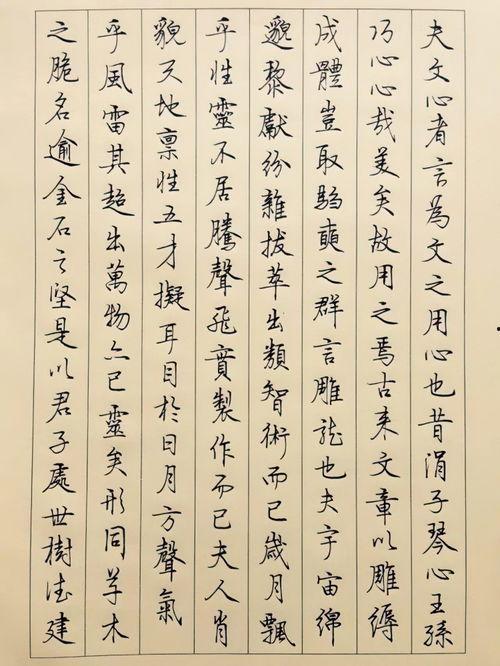 夫文心者言為文之用心也昔涓子琴心王孫
巧心心哉美矣故用之焉古来文章以雕縟
成體豈取騶奭之群言雕龍也夫宇宙綿
邈黎獻紛雜拔萃出類智術而已歲月飄
乎性靈不居騰聲飛實製作而已夫人肖
貌天地禀性五才擬耳目於日月方聲氣
乎風雷其超出萬物亦已靈矣形同草木
之脆名逾金石之坚是以君子處世樹德建